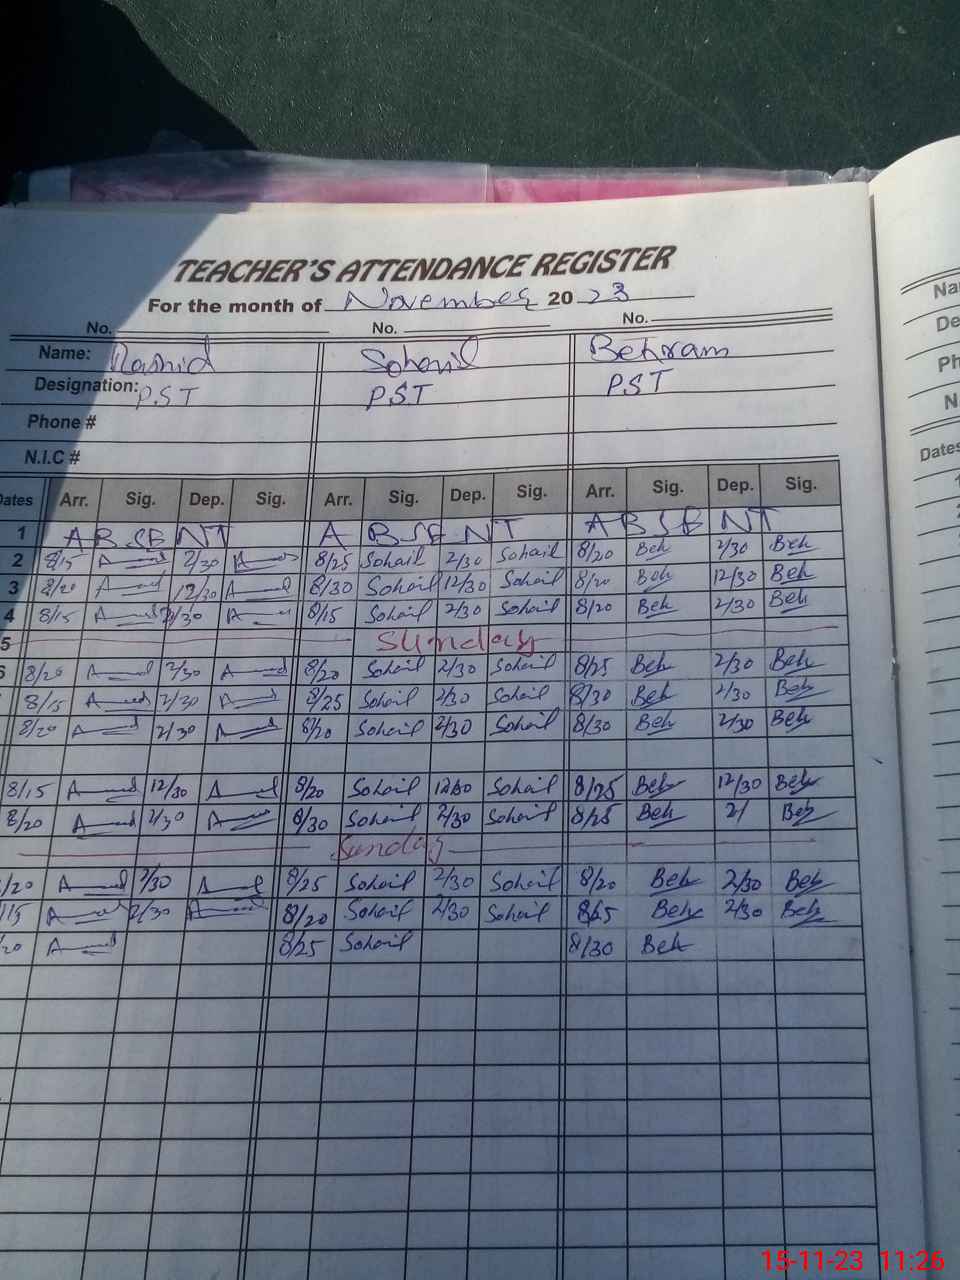 TEACHER'S ATTENDANCE REGISTER
For the month of November 20 23
No. No. No.
Name: Rashid Sohail Behram
Designation: P.S.T P.S.T P.S.T
Phone #
N.I.C #
Dates Arr. Sig. Dep. Sig. Arr. Sig. Dep. Sig. Arr. Sig. Dep. Sig.
1 ABSENT ABSENT ABSENT
2 8/15 2/30 8/25 Sohail 2/30 Sohail 8/20 Beh 2/30 Beh
3 8/20 12/30 8/30 Sohail 12/30 Sohail 8/20 Beh 12/30 Beh
4 8/15 2/30 8/15 Sohail 2/30 Sohail 8/20 Beh 2/30 Beh
5 Sunday
6 8/20 2/30 8/20 Sohail 2/30 Sohail 8/25 Beh 2/30 Beh
8/15 2/30 8/25 Sohail 2/30 Sohail 8/30 Beh 2/30 Beh
8/20 2/30 8/20 Sohail 2/30 Sohail 8/30 Beh 2/30 Beh
8/15 12/30 8/20 Sohail 12/30 Sohail 8/25 Beh 12/30 Beh
8/20 2/30 8/30 Sohail 2/30 Sohail 8/25 Beh 2/ Beh
Sunday
/20 2/30 8/25 Sohail 2/30 Sohail 8/20 Beh 2/30 Beh
/15 2/30 8/20 Sohail 2/30 Sohail 8/25 Beh 2/30 Beh
/20 8/25 Sohail 8/30 Beh
Na
De
Ph
N
Dates
15-11-23 11:26